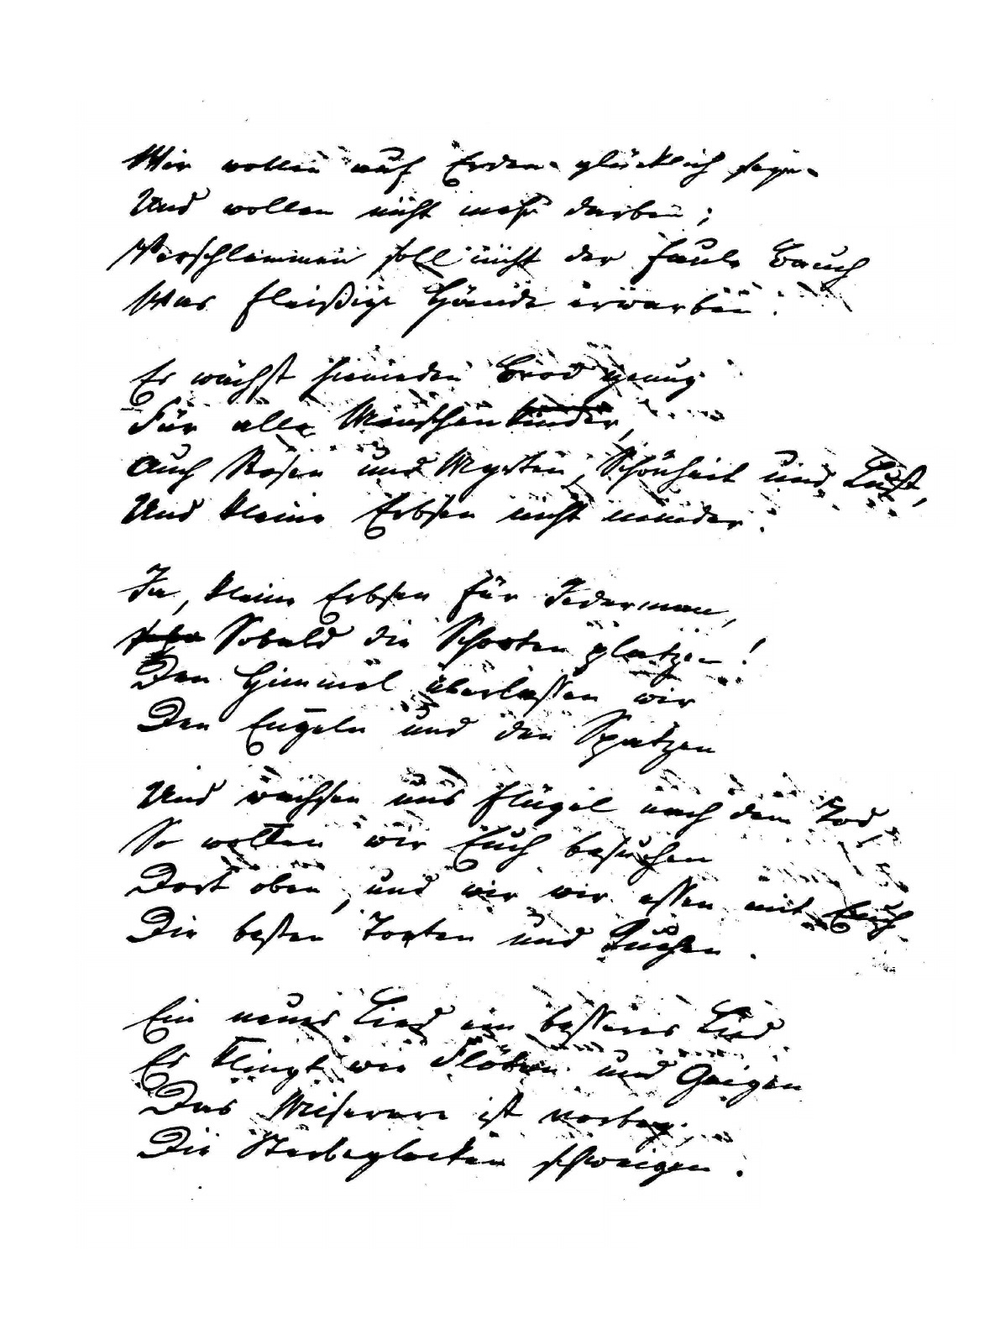 Wir wollen auf Erden glücklich seyn
Und wollen nicht mehr darben;
Verschlemmen soll nicht der faule Bauch
Was fleißige Hände erwarben.
Es wächst hienieden Brod genug
Für alle Menschenkinder,
Auch Rosen und Myrten, Schönheit und Lust,
Und kleine Erbsen nicht minder.
Ja, kleine Erbsen für Jederman,
Sobald die Schooten platzen!
Den Himmel überlassen wir
Den Engeln und den Spatzen
Und wachsen uns Flügel nach dem Tod,
So wollen wir Euch besuchen
Dort oben, und wir wir essen mit Euch
Die besten Torten und Kuchen.
Ein neues Lied ein besseres Lied
Es klingt wie Flöten und Geigen
Das Miserere ist vorbey,
Die Sterbeglocken schweigen.